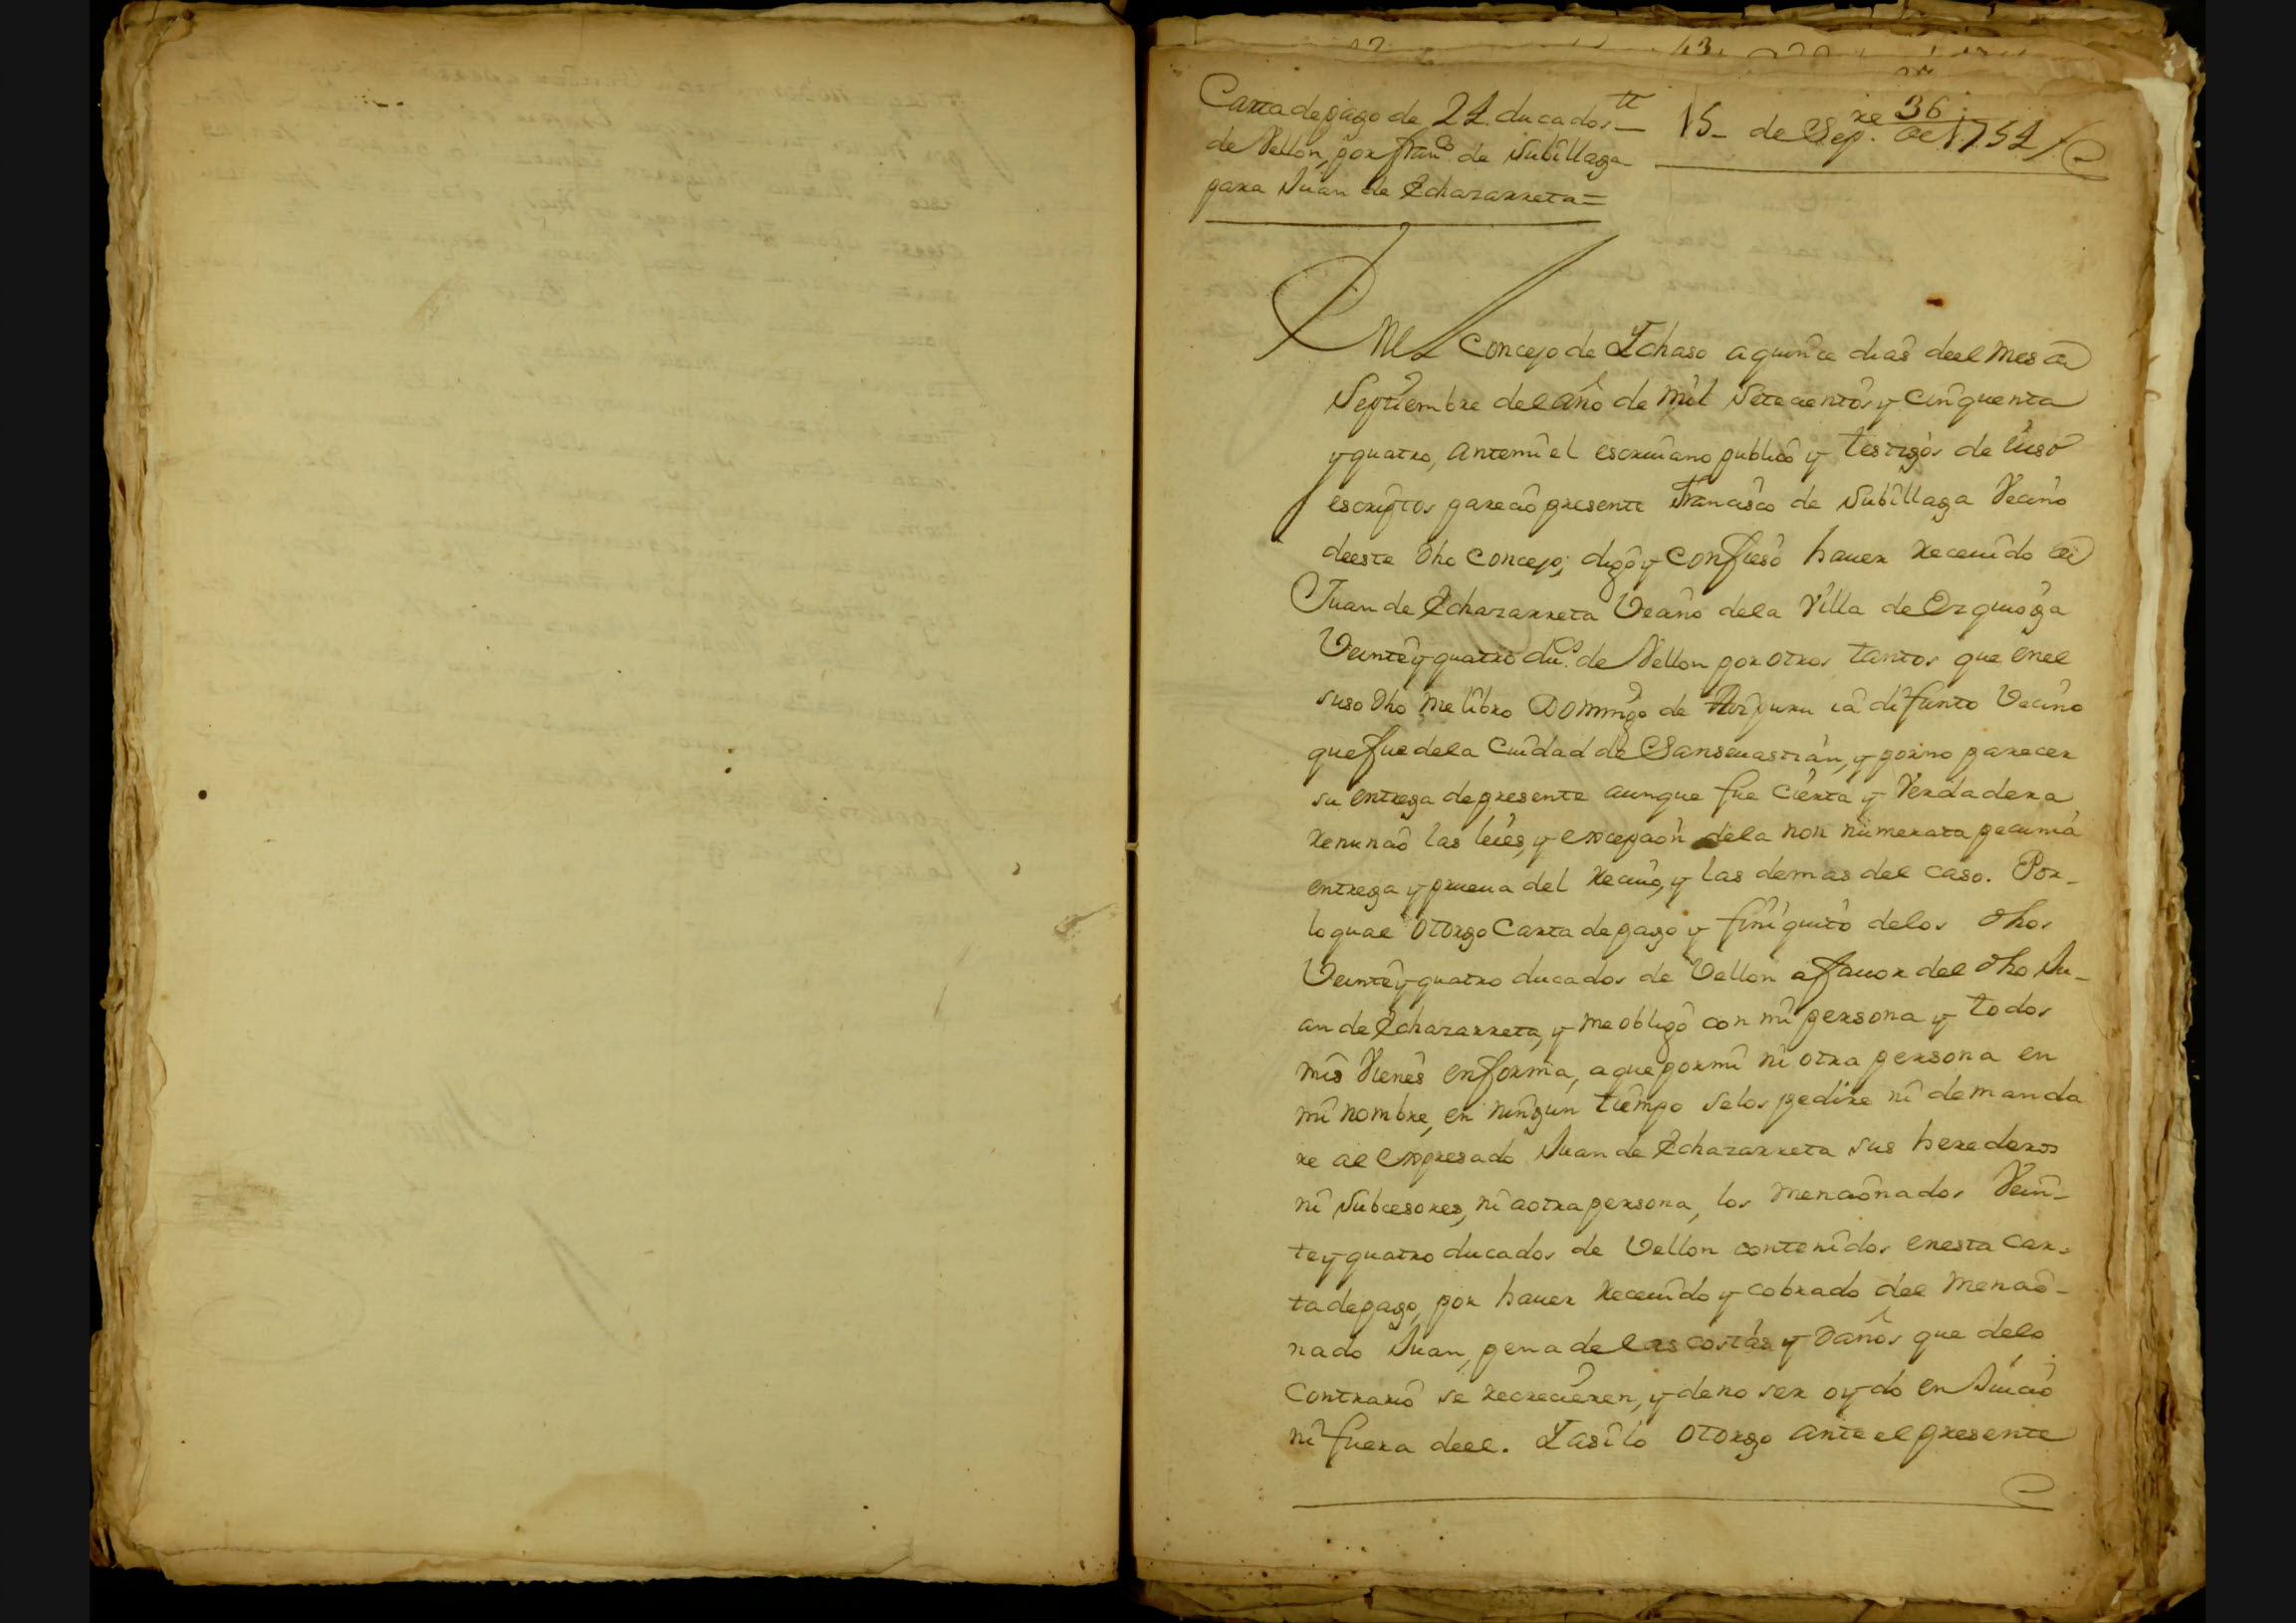 36
Carta de pago de 24 ducados tt
de Vellon, por Franco de Subillaga
para Juan de Echazarreta =
15 de Sepre de 1754
En el Concejo de Ychaso a quince dias deel mes de
Septiembre del año de mil Setecientos y Cinquenta
y quatro, ante mi el escriuano publico y testigos de iuso
escriptos parecio presente Francisco de Subillaga Vecino
deeste dho Concejo; digo y Confieso hauer receuido de
Juan de Echazarreta Vecino dela Villa de Ezquioga
Veinte y quatro dus. de Vellon por otros tantos que enel
suso dho me libro Domingo de ia difunto Vecino
que fue dela Ciudad de Sanseuastian, y por no parecer
su entrega de presente aunque fue Cierta y Verdadera
renuncio las leies, y excepcion dela non numerata pecunia
entrega y prueua del reciuo, y las demas del caso. Por-
lo qual otorgo Carta de pago y finiquito delos dhos
Veinte y quatro ducados de Vellon a ffauor del dho Ju-
an de Echazarreta, y me obligo con mi persona y todos
mis Vienes en forma, a que por mi ni otra persona en
mi nombre, en ningun tiempo selos pedire ni demanda
re al expresado Juan de Echazarreta sus herederos
ni Subcesores, ni a otra persona, los mencionados Vein-
te y quatro ducados de Vellon contenidos en esta Car-
ta de pago, por hauer receuido y cobrado del mencio-
nado Juan, pena de las costas y Daños que delo
Contrario se recrecieren, y de no ser oydo en Juicio
ni fuera deel. Y asi lo otorgo ante el presente